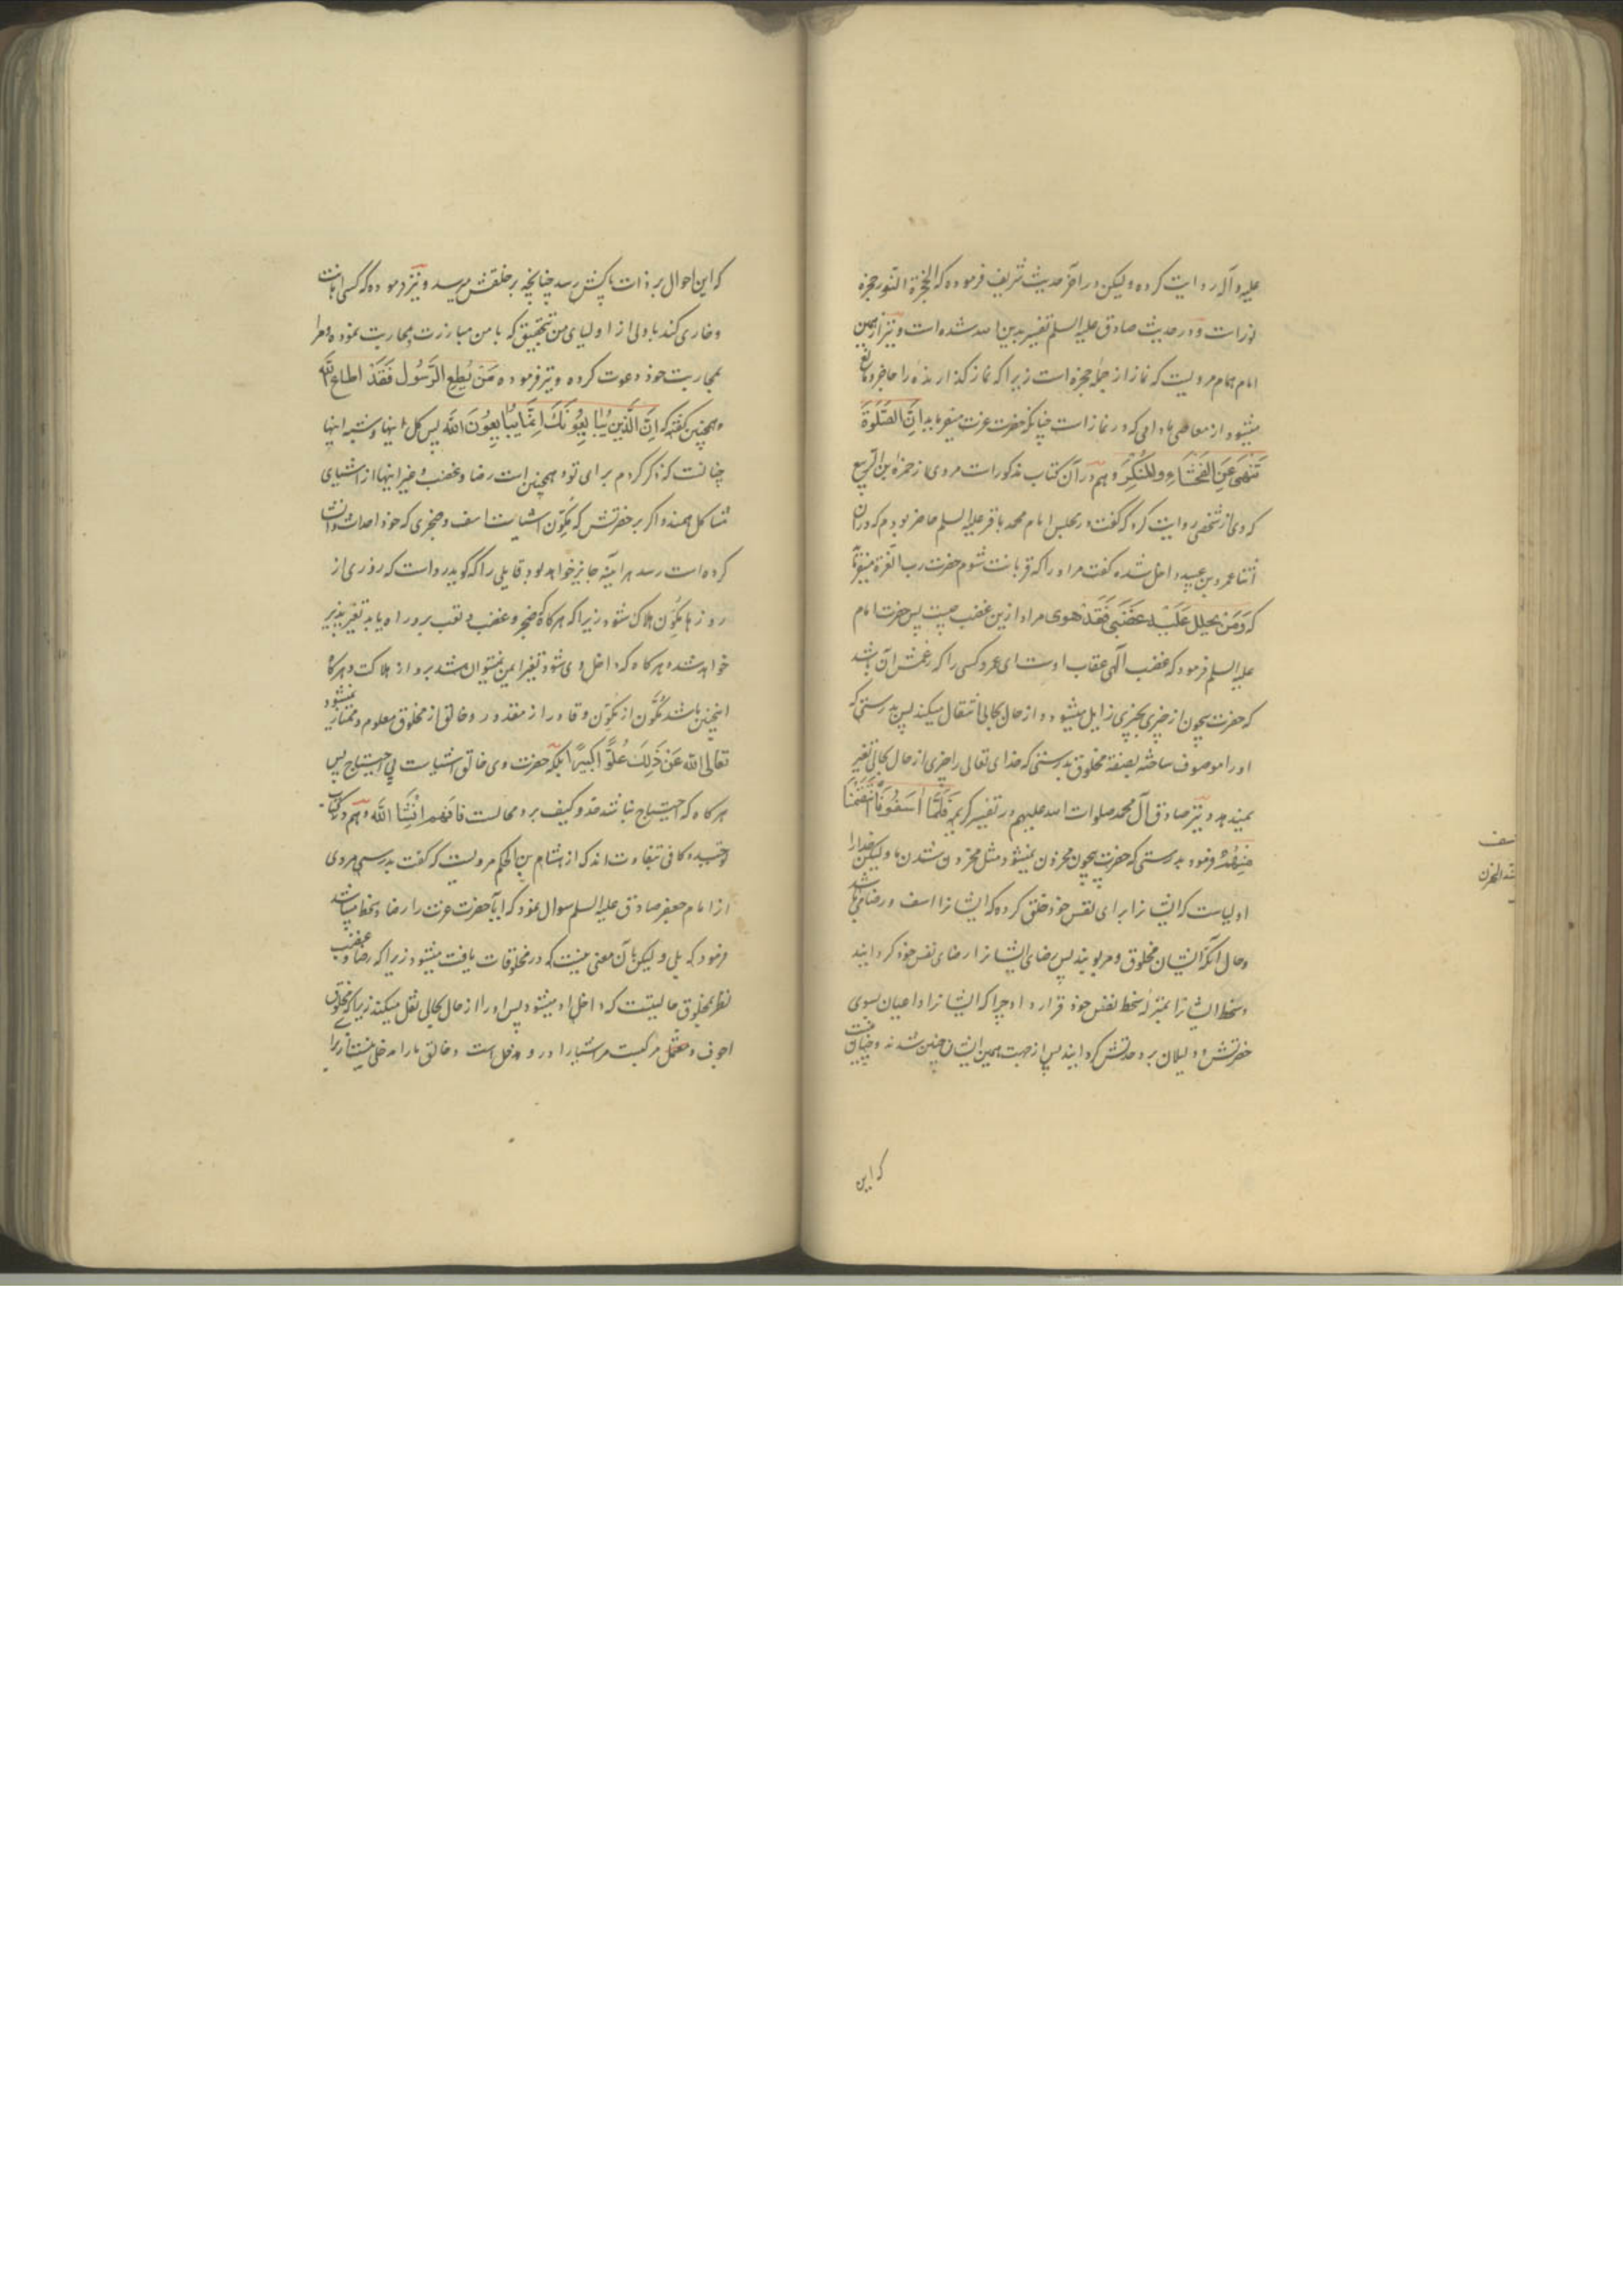 علیه و آله روایت کرده و لیکن در آخر حدیث شریف فرموده که الحجزة النور حجزه
نورات و در حدیث صادق علیه السلم تفسیر بدین الله شده است و نیز از همین
امام همام مرویست که نماز از جمله حجزه است زیرا که نماز گذارنده را حاجز و مانع
میشود از معاصی مادامی که در نماز است چنانکه حضرت عزت میفرماید ان الصلوة
تنهی عن الفحشاء والمنکر و هم در آن کتاب مذکور است مروی از حمزة ابن الربیع
که وی از شخصی روایت کرد که گفت در مجلس امام محمد باقر علیه السلم حاضر بودم که در آن
اثنا عمرو بن عبید داخل شده گفت مر او را که قربانت شوم حضرت رب العزة میفرماید
که وَمَن یحلل علیه غضبی فقد هوی مراد ازین غضب چیست پس حضرت امام
علیه السلم فرمود که غضب الهی عقاب اوست ای عمرو کسی را که زعمش آن باشد
که حضرت بیچون از چیزی بچیزی زایل میشود و از حال بحالی انتقال میکند پس بدرستی که
او را موصوف ساخته بصفة مخلوق بدرستی که خدای تعالی را چیزی از حال بحالی تغیر
نمیدهد و نیز صادق آل محمد صلوات الله علیهم در تفسیر کریمه فَلَمّا آسَفُونا انتَقَمنا
مِنهُم فرمود بدرستی که حضرت بیچون محزون نمیشود مثل محزون شدن ما و لیکن خدا را
اولیاست که ایشانرا برای نفس خود خلق کرده که ایشانرا اسف و رضا میباشد
و حال آنکه ایشان مخلوق و مربوبند پس رضای ایشانرا رضای نفس خود گردانید
و سخط ایشانرا بمنزله سخط نفس خود قرار داد چرا که ایشانرا داعیان بسوی
حضرتش و دلیلان بر وحدتش گردانید پس از جهت همین ایشان چنین شدند و چنان نیست
که این
که این احوال بر ذات پاکش رسد چنانچه بر خلقش میرسد و نیز فرموده که کسی اهانت
و خاری کند با ولی از اولیای من بتحقیق که با من مبارزت بمحاربت نموده و مرا
بمحاربت خود دعوت کرده و نیز فرموده مَن یُطِعِ الرَّسُولَ فَقَد اطاع الله
و همچنین گفته که اِنَّ الَّذینَ یُبایِعُونَکَ اِنَّما یُبایِعُونَ الله پس کل اینها و شبه اینها
چنانست که ذکر کردم برای تو و همچنین است رضا و غضب و غیر اینها از اشیای
مشاکل همند و اگر بر حضرتش که مکوّن اشیاست اسف و ضجری که خود احداث و انشا
کرده است رسد هر آینه جایز خواهد بود قایلی را که گوید رواست که روزی از
روزها مکوّن هلاک شود زیرا که هرگاه ضجر و غضب و تعب برو راه یابد تغیر پذیر
خواهد شد و هرگاه که داخل وی شود تغیر ایمن نمیتوان شد برو از هلاکت و هرگاه
اینچنین باشد مکوَّن از مکوِّن و قادر از مقدور و خالق از مخلوق معلوم و ممتاز نمیشود
تعالی الله عن ذلک علوًّا کبیرًا بلکه حضرت وی خالق اشیاست بی احتیاج پس
هرگاه که احتیاج نباشد حد و کیف برو محالست فافهم انشاء الله و هم در کتاب
توحید و کافی بتفاوت اندک از هشام بن الحکم مرویست که گفت بدرستی مردی
از امام جعفر صادق علیه السلم سوال نمود که ایا حضرت عزت را رضا و سخط میباشد
فرمود که بلی و لیکن بآن معنی نیست که در مخلوقات یافت میشود زیرا که رضا و غضب
نظر بمخلوق حالیتیست که داخل او میشود پس او را از حال بحالی نقل میکند زیرا که مخلوق
اجوف و معتمل مرکبست مر اشیا را در و مدخل است و خالق ما را مدخلی نیست زیرا